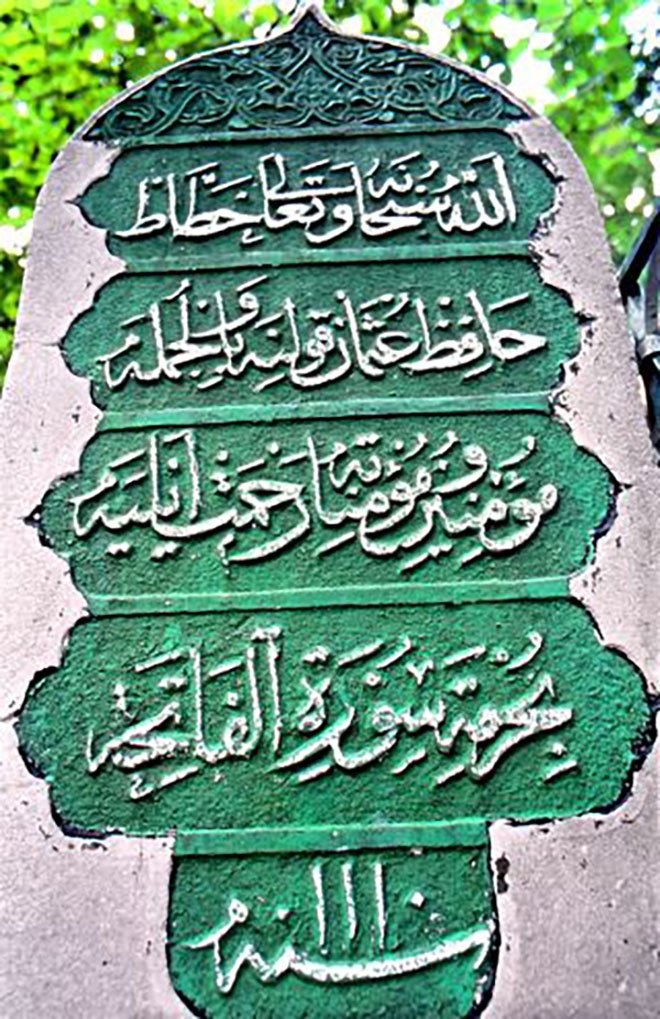 اللّٰه سُبْحَانَهُ وَتَعَالَى خَطَّاط
حَافِظ عُثْمَان قُولِنَه وَالْجُمْلَه
مُؤْمِنِينَ وَ مُؤْمِنَاتَه رَحْمَت اَيْلَيَه
بِحُرْمَةِ سُورَةِ الْفَاتِحَه
سنه ١١١٠